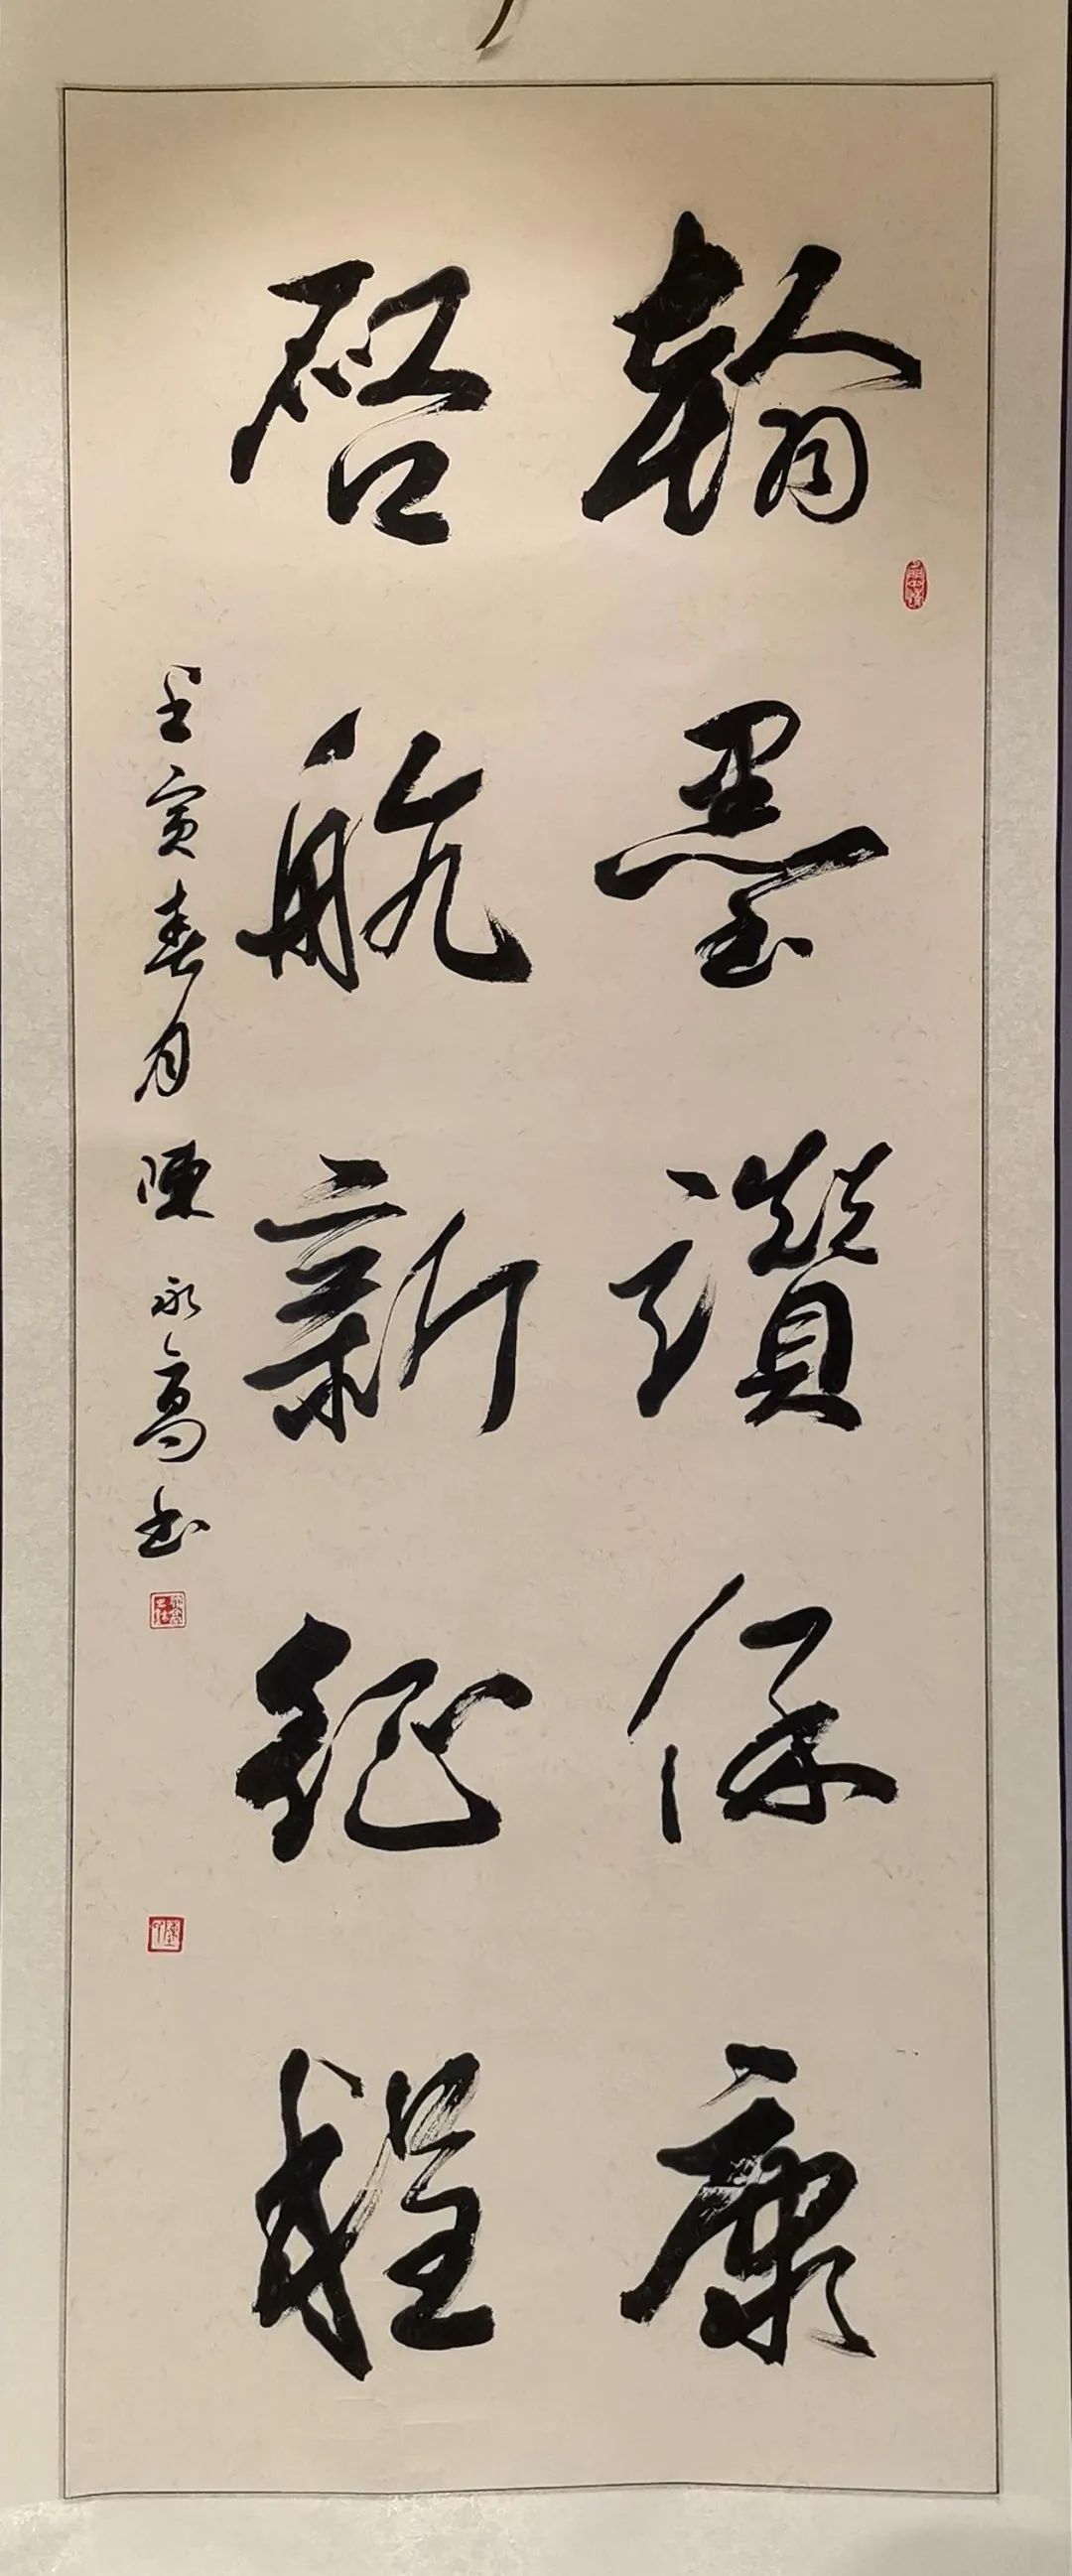 翰墨讚保康
啓航新征程
壬寅春月陳永高书